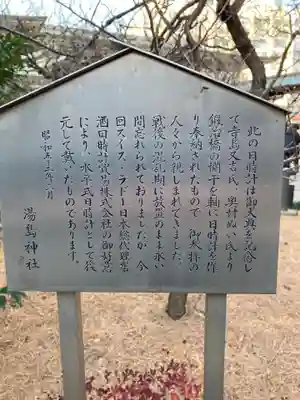 此の日時計は御大典を記念し
て寺島又吉氏、奥村ぬい氏より
鍛冶橋の欄干を軸に日時計を作
り奉納されたもので、御参拝の
人々から親しまれてきました。
戦後の混乱期に放置のまま永い
間忘れられておりましたが、今
回スイス・ラドー日本総代理店
酒田時計貿易株式会社の御好意
により、水平式日時計として復
元して戴いたものであります。
昭和五三年六月
湯島神社